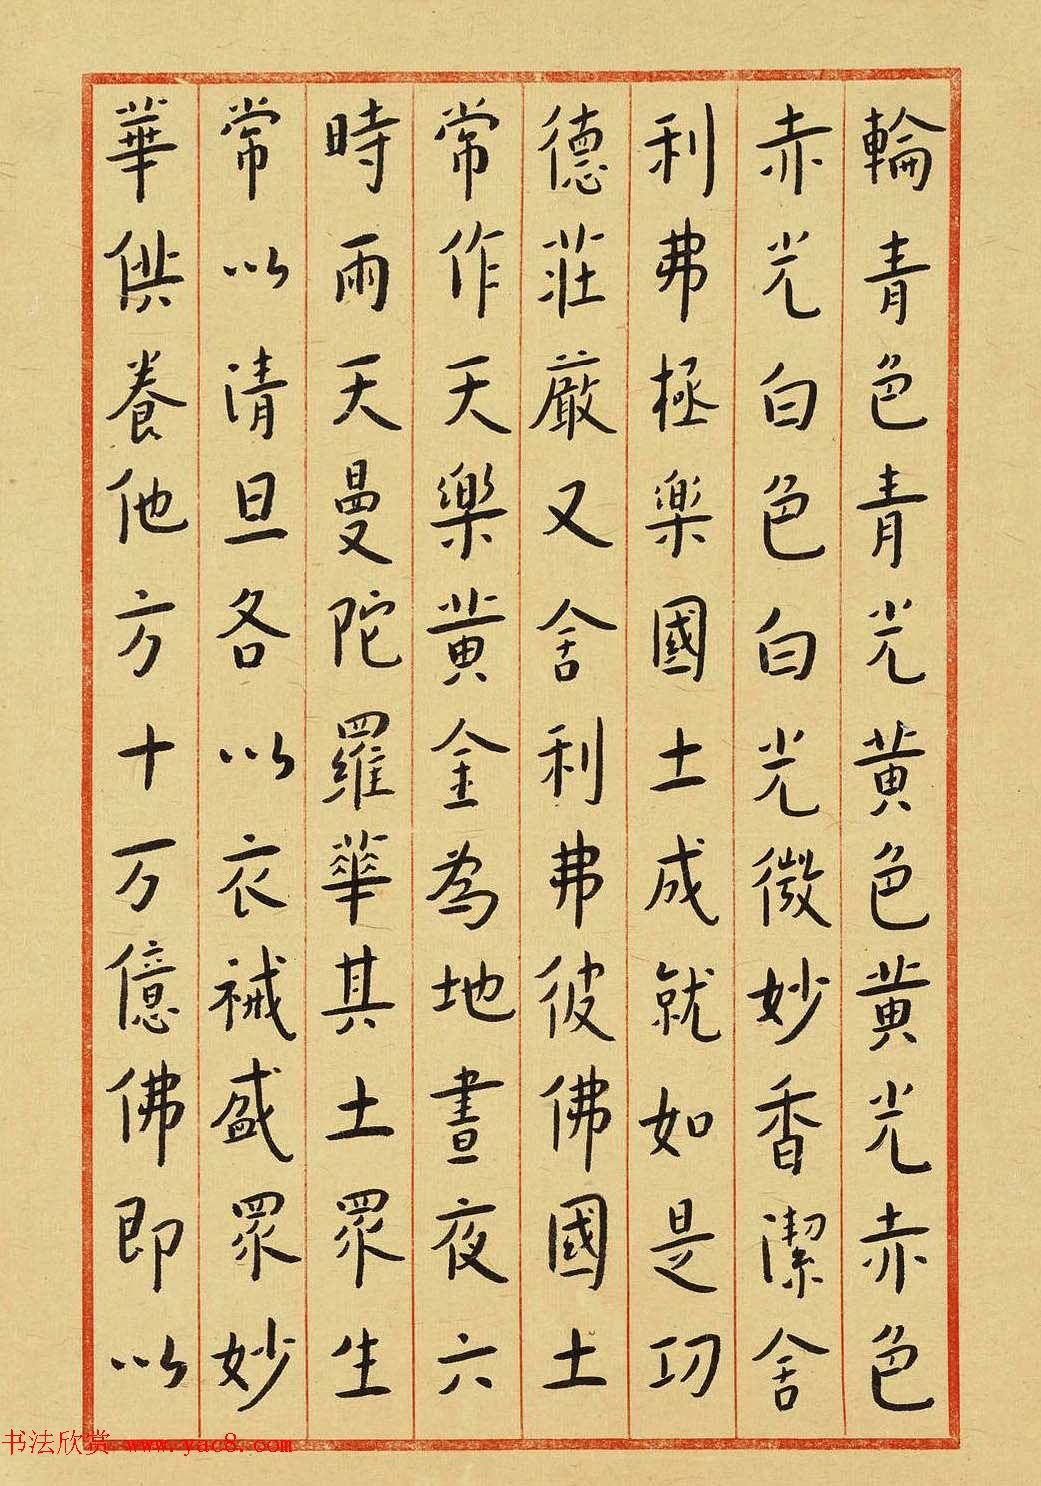 輪青色青光黄色黄光赤色
赤光白色白光微妙香潔舍
利弗極楽國土成就如是功
德莊厳又舍利弗彼佛國土
常作天樂黄金為地晝夜六
時雨天曼陀羅華其土眾生
常以清旦各以衣祴盛眾妙
華供養他方十万億佛即以
书法欣赏 www.yac8.com